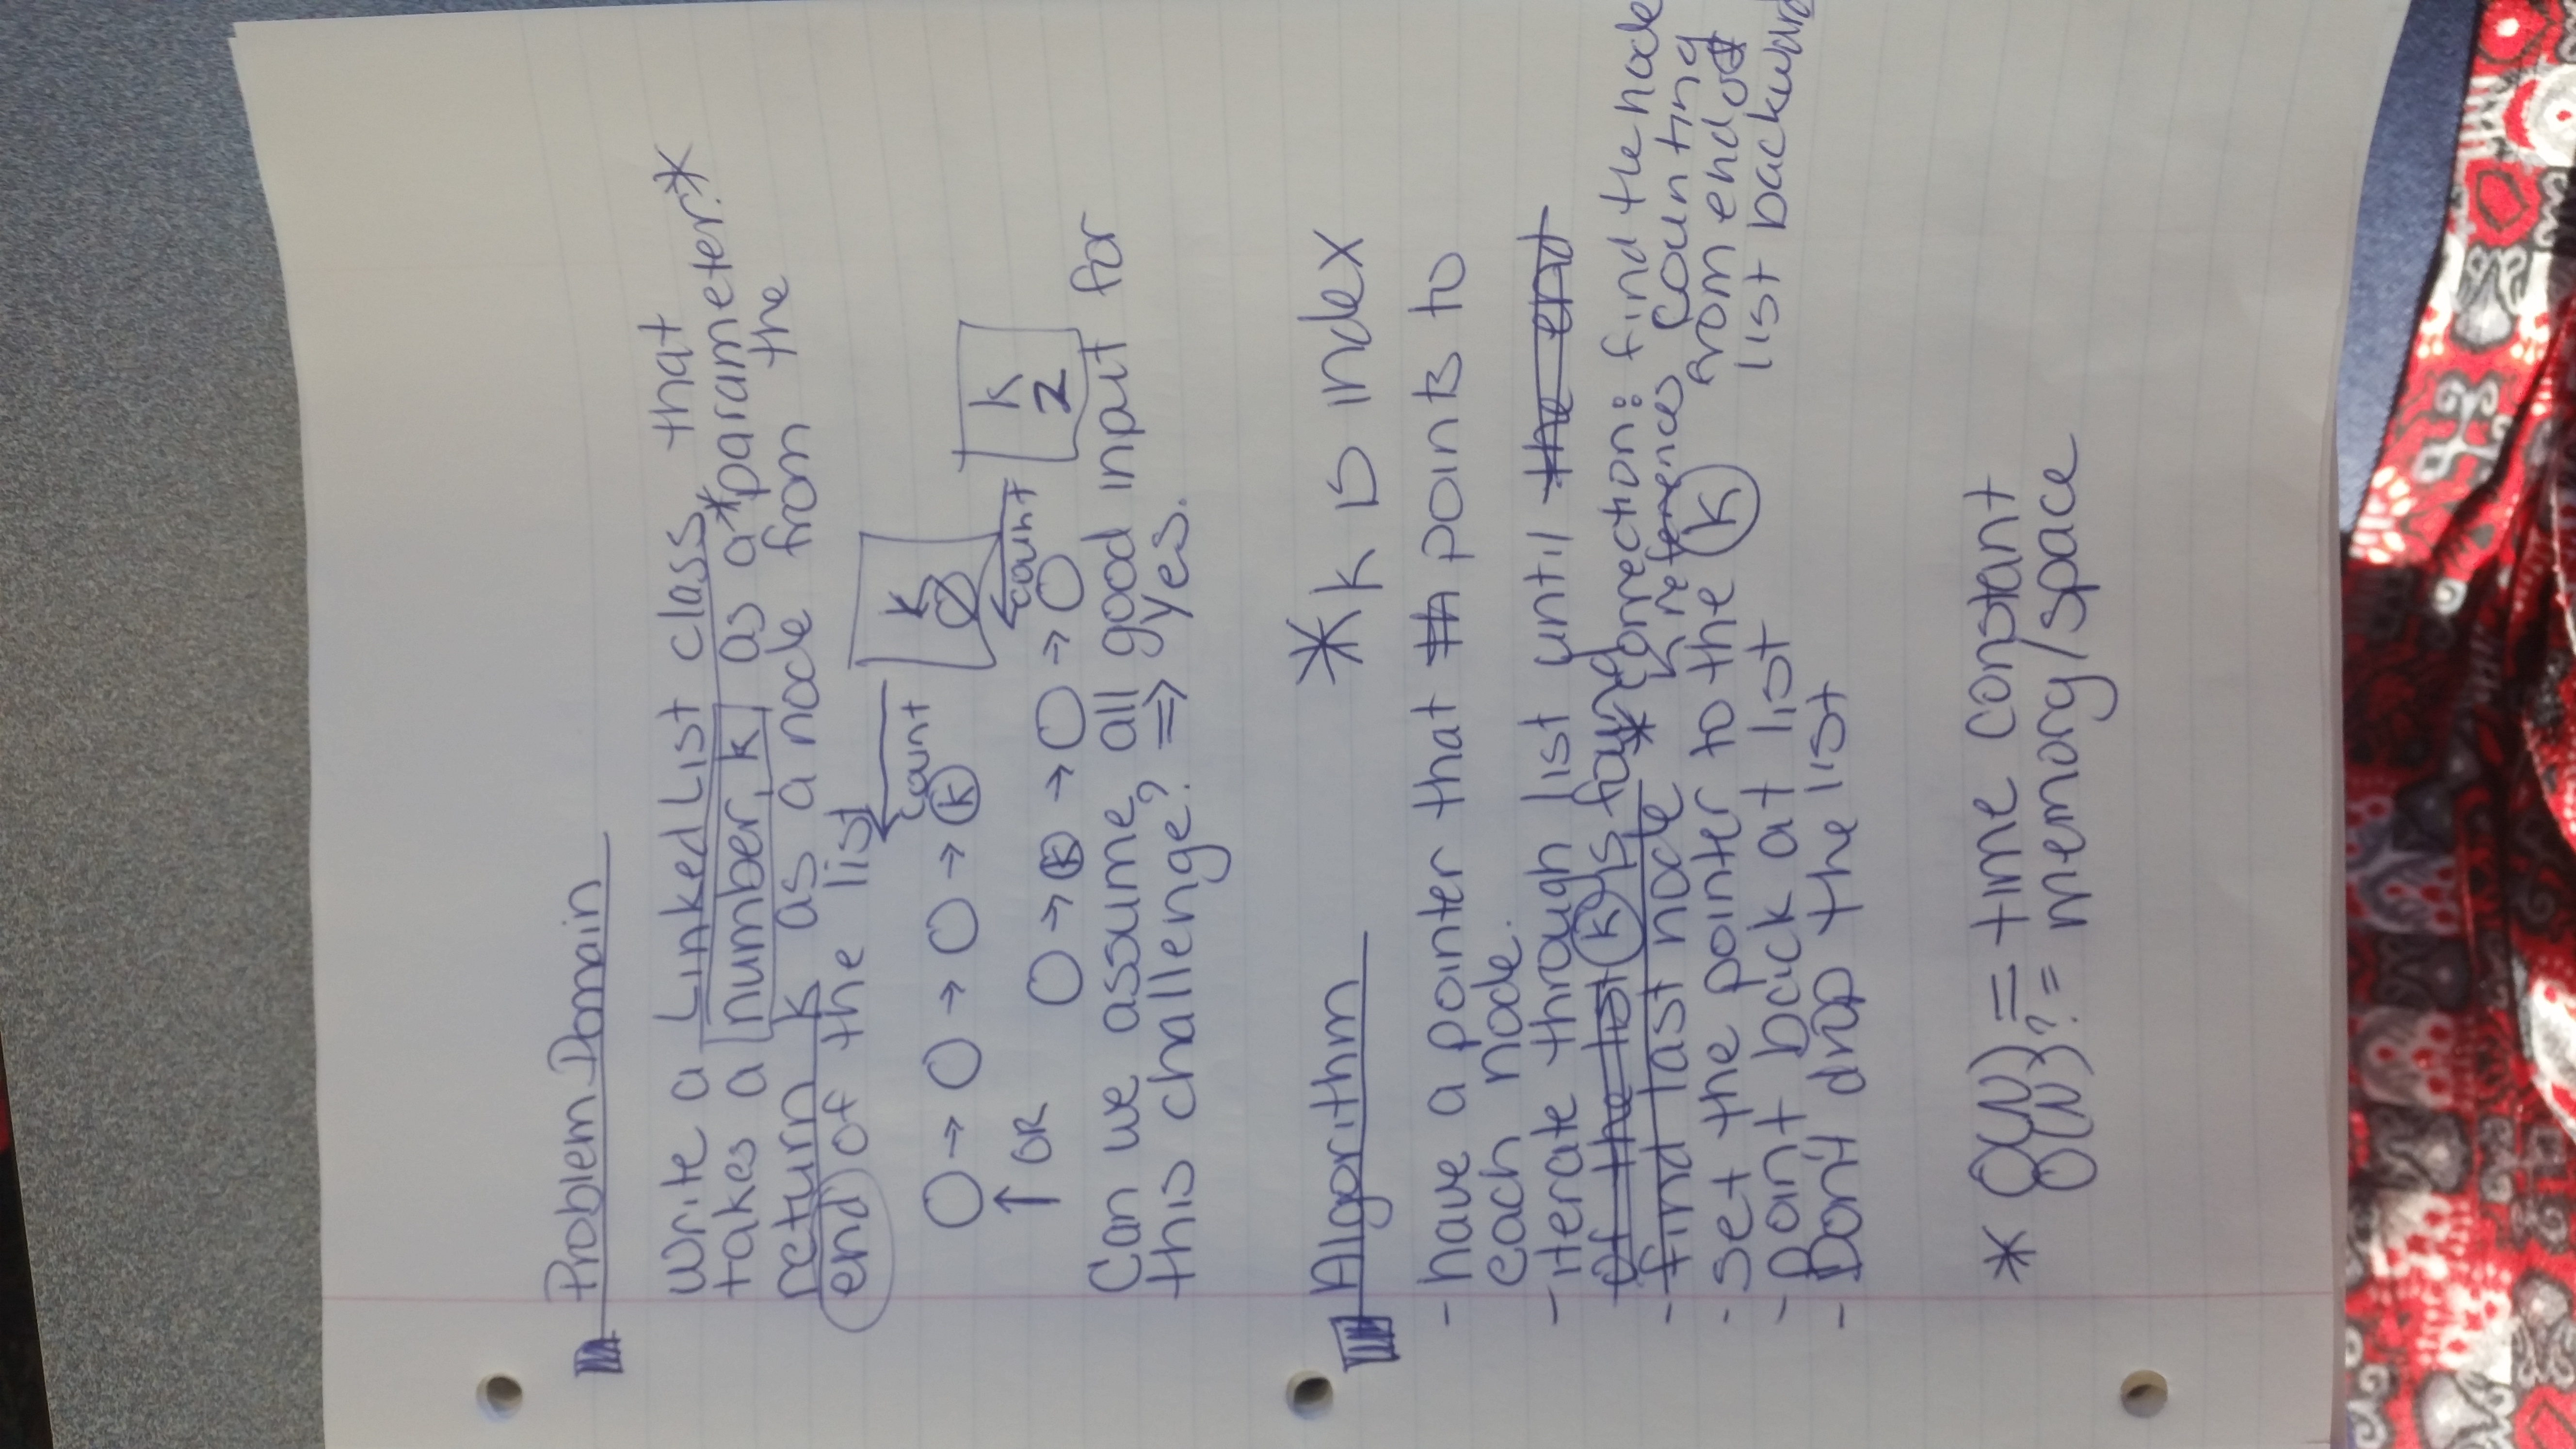 Problem Domain
Write a Linked List class, that
takes a number, k, as a *parameter.*
return k as a node from the
end of the list
count
k
0
k
↑ OR
count
k
2
k
Can we assume, all good input for
this challenge? ⇒ Yes.
Algorithm
*k is index
- have a pointer that th points to
each node.
- iterate through list until the end
of the list k is found
- find last node
* correction: find the node
k references counting
from end of
list backward
- set the pointer to the k
- point back at list
- Don't drop the list
* O(N) = time constant
O(N)? = memory/space